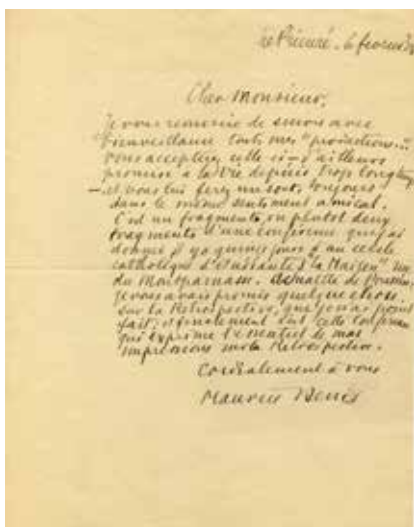 Le Prieuré. 6 février
Cher Monsieur,
Je vous remercie de suivre avec
bienveillance toutes mes "productions".
Vous accepterez celle ci d'ailleurs
promise à la Vie depuis trop longtemps
— et vous lui ferez un sort, toujours
dans le même sentiment amical.
C'est un fragment, ou plutôt deux
fragments d'une conférence que j'ai
donnée il y a quinze jours à un cercle
catholique d'étudiants, "la Maison"
du Montparnasse. de Poussin,
je vous avais promis quelque chose
sur la Rétrospective, que je n'ai point
fait; et finalement c'est cette conférence
qui exprime l'essentiel de mes
impressions sur la Rétrospective.
Cordialement à vous
Maurice Denis